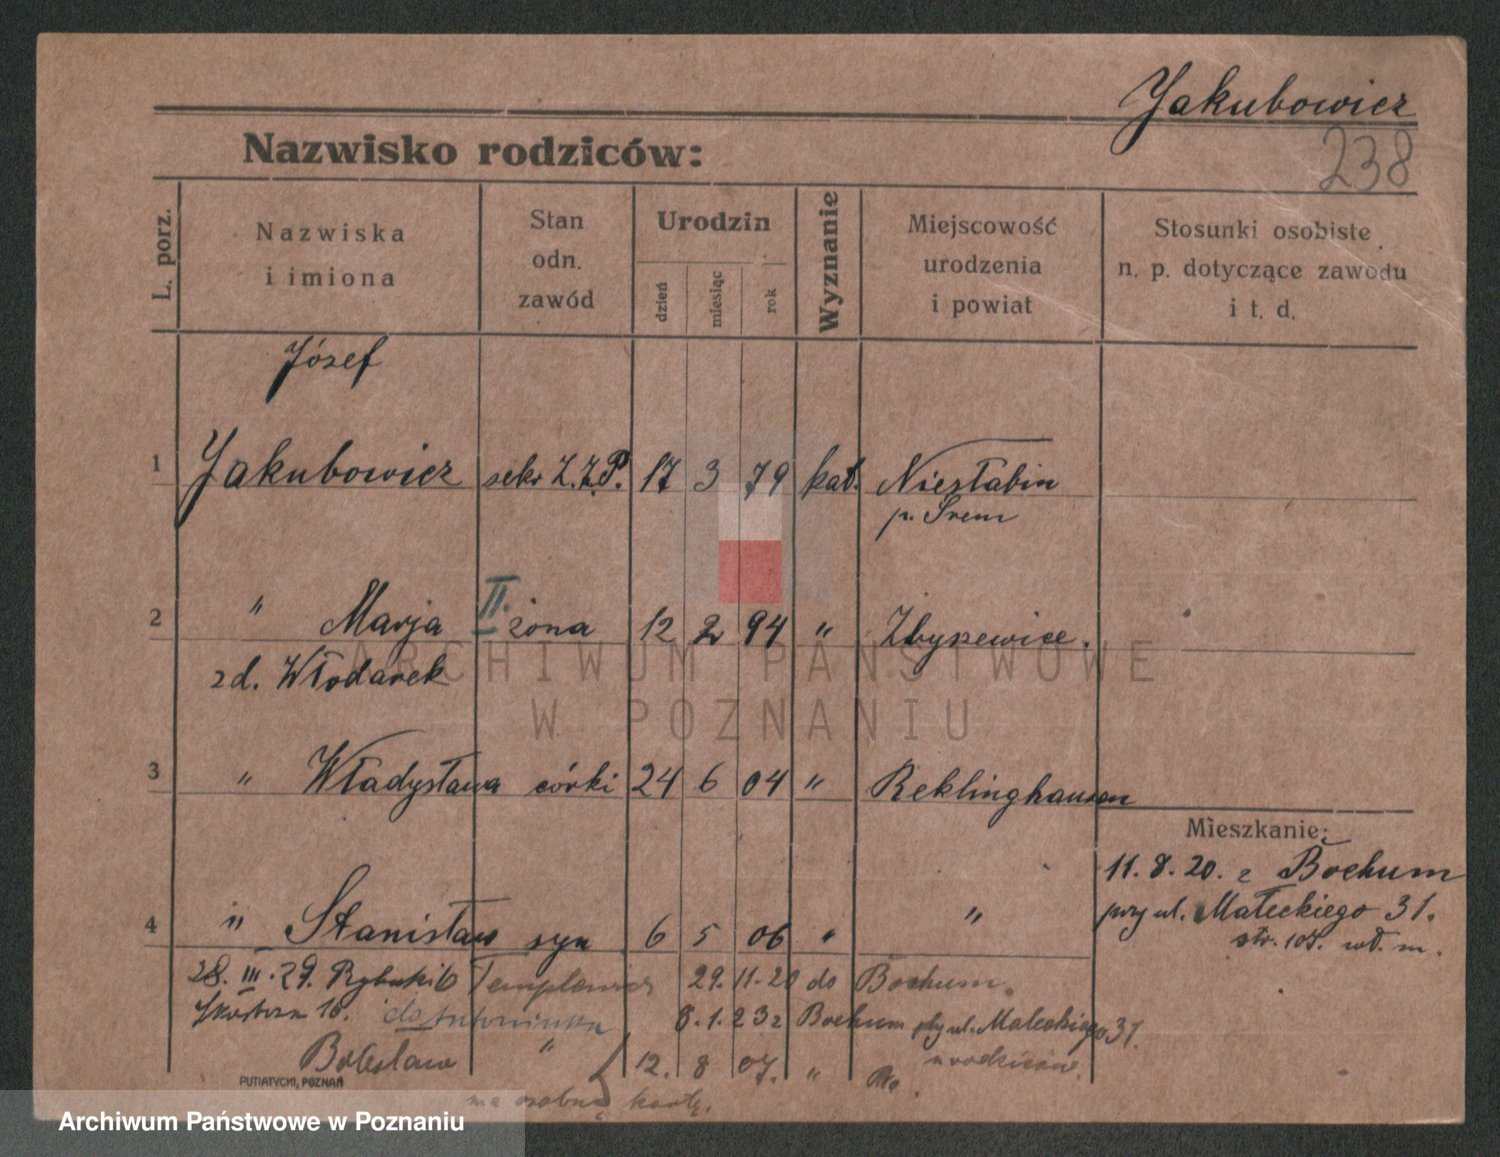 Jakubowicz
238
Nazwisko rodziców:
L. porz.
Nazwiska
i imiona
Stan
odn.
zawód
Urodzin
dzień
miesiąc
rok
Wyznanie
Miejscowość
urodzenia
i powiat
Stosunki osobiste
n. p. dotyczące zawodu
i t. d.
Józef
1 Jakubowicz sekr Z.Z.P. 17 3 79 kat. Niesłabin
p. Śrem
2 " Marja II. żona 12 2 94 " Zbyszewice.
zd. Włodarek
ARCHIWUM PAŃSTWOWE
W POZNANIU
3 " Władysława córki 24 6 04 " Reklinghausen
Mieszkanie:
11. 8. 20. z Bochum
przy ul. Małeckiego 31.
str. 107. wł. m.
4 " Stanisław syn 6 5 06 " "
28. III. 29. 29. 11. 20 do Bochum.
16. do 8. 1. 23 z Bochum przy ul. Małeckiego 31.
u rodziców.
Bolesław " 12. 8 07. "
PUTIATYCKI, POZNAŃ
ma osobną kartę.
Archiwum Państwowe w Poznaniu